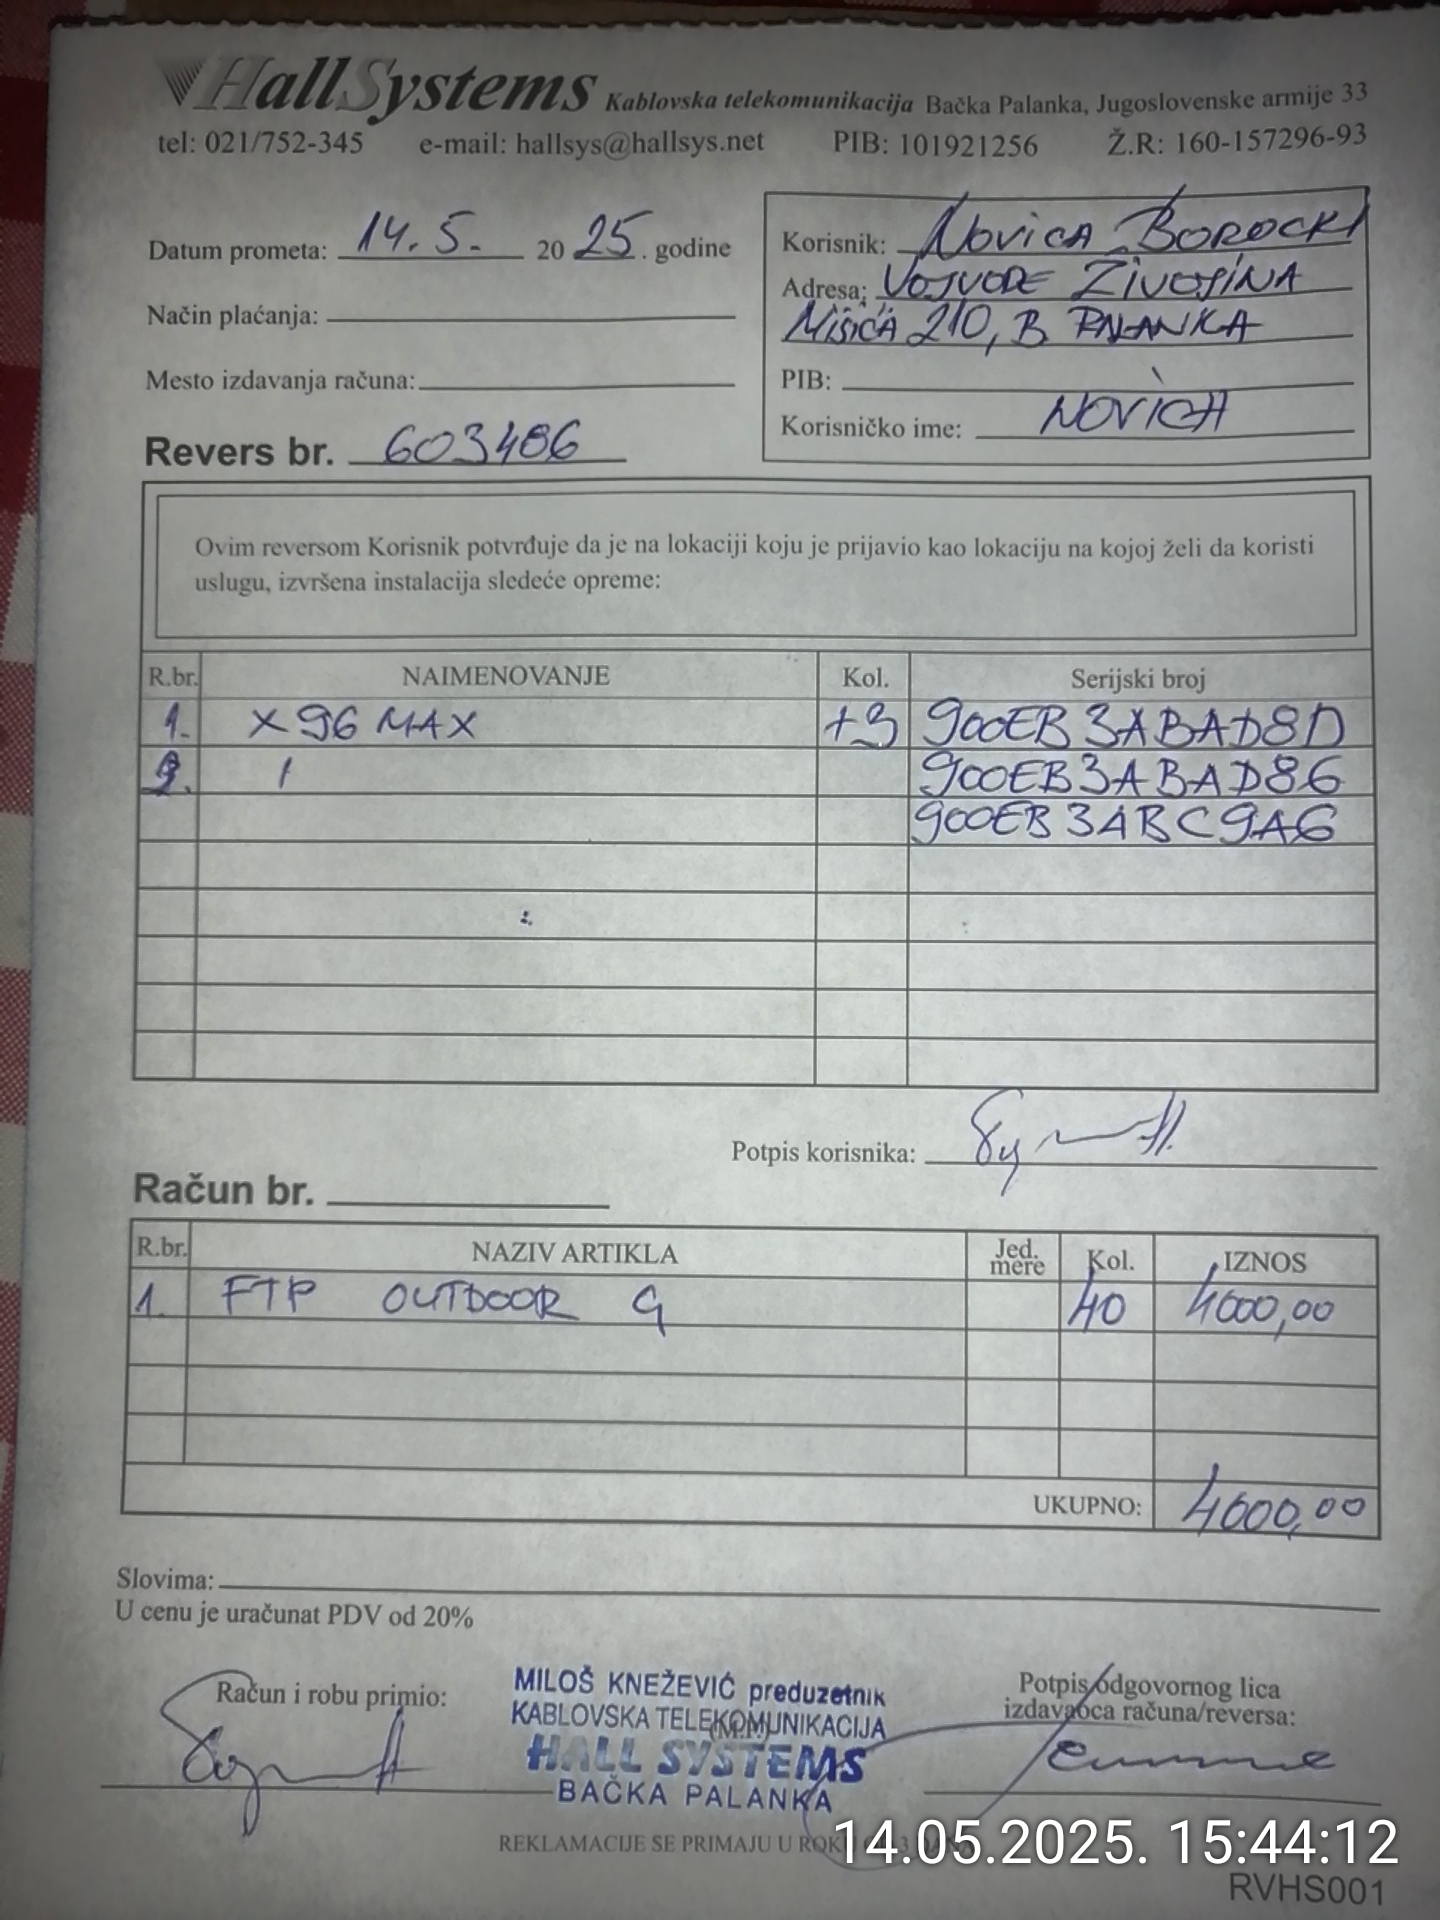 HallSystems Kablovska telekomunikacija Bačka Palanka, Jugoslovenske armije 33
tel: 021/752-345 e-mail: hallsys@hallsys.net PIB: 101921256 Ž.R: 160-157296-93
Datum prometa: 14.5. 2025. godine
Način plaćanja:
Mesto izdavanja računa:
Revers br. 603486
Korisnik: NOVICA BOROCKI
Adresa: VOJVODE ŽIVOJINA
MIŠIĆA 210, B. PALANKA
PIB:
Korisničko ime: NOVICA
Ovim reversom Korisnik potvrđuje da je na lokaciji koju je prijavio kao lokaciju na kojoj želi da koristi
uslugu, izvršena instalacija sledeće opreme:
R.br. NAIMENOVANJE Kol. Serijski broj
1. X96 MAX +3 900EB3ABAD8D
2. 900EB3ABAD86
900EB3ABC9A6
Potpis korisnika:
Račun br.
R.br. NAZIV ARTIKLA Jed. mere Kol. IZNOS
1. FTP OUTDOOR 40 4000,00
UKUPNO: 4000,00
Slovima:
U cenu je uračunat PDV od 20%
Račun i robu primio:
MILOŠ KNEŽEVIĆ preduzetnik
KABLOVSKA TELEKOMUNIKACIJA
(M.P.)
HALL SYSTEMS
BAČKA PALANKA
Potpis odgovornog lica
izdavaoca računa/reversa:
REKLAMACIJE SE PRIMAJU U ROKU
14.05.2025. 15:44:12
RVHS001